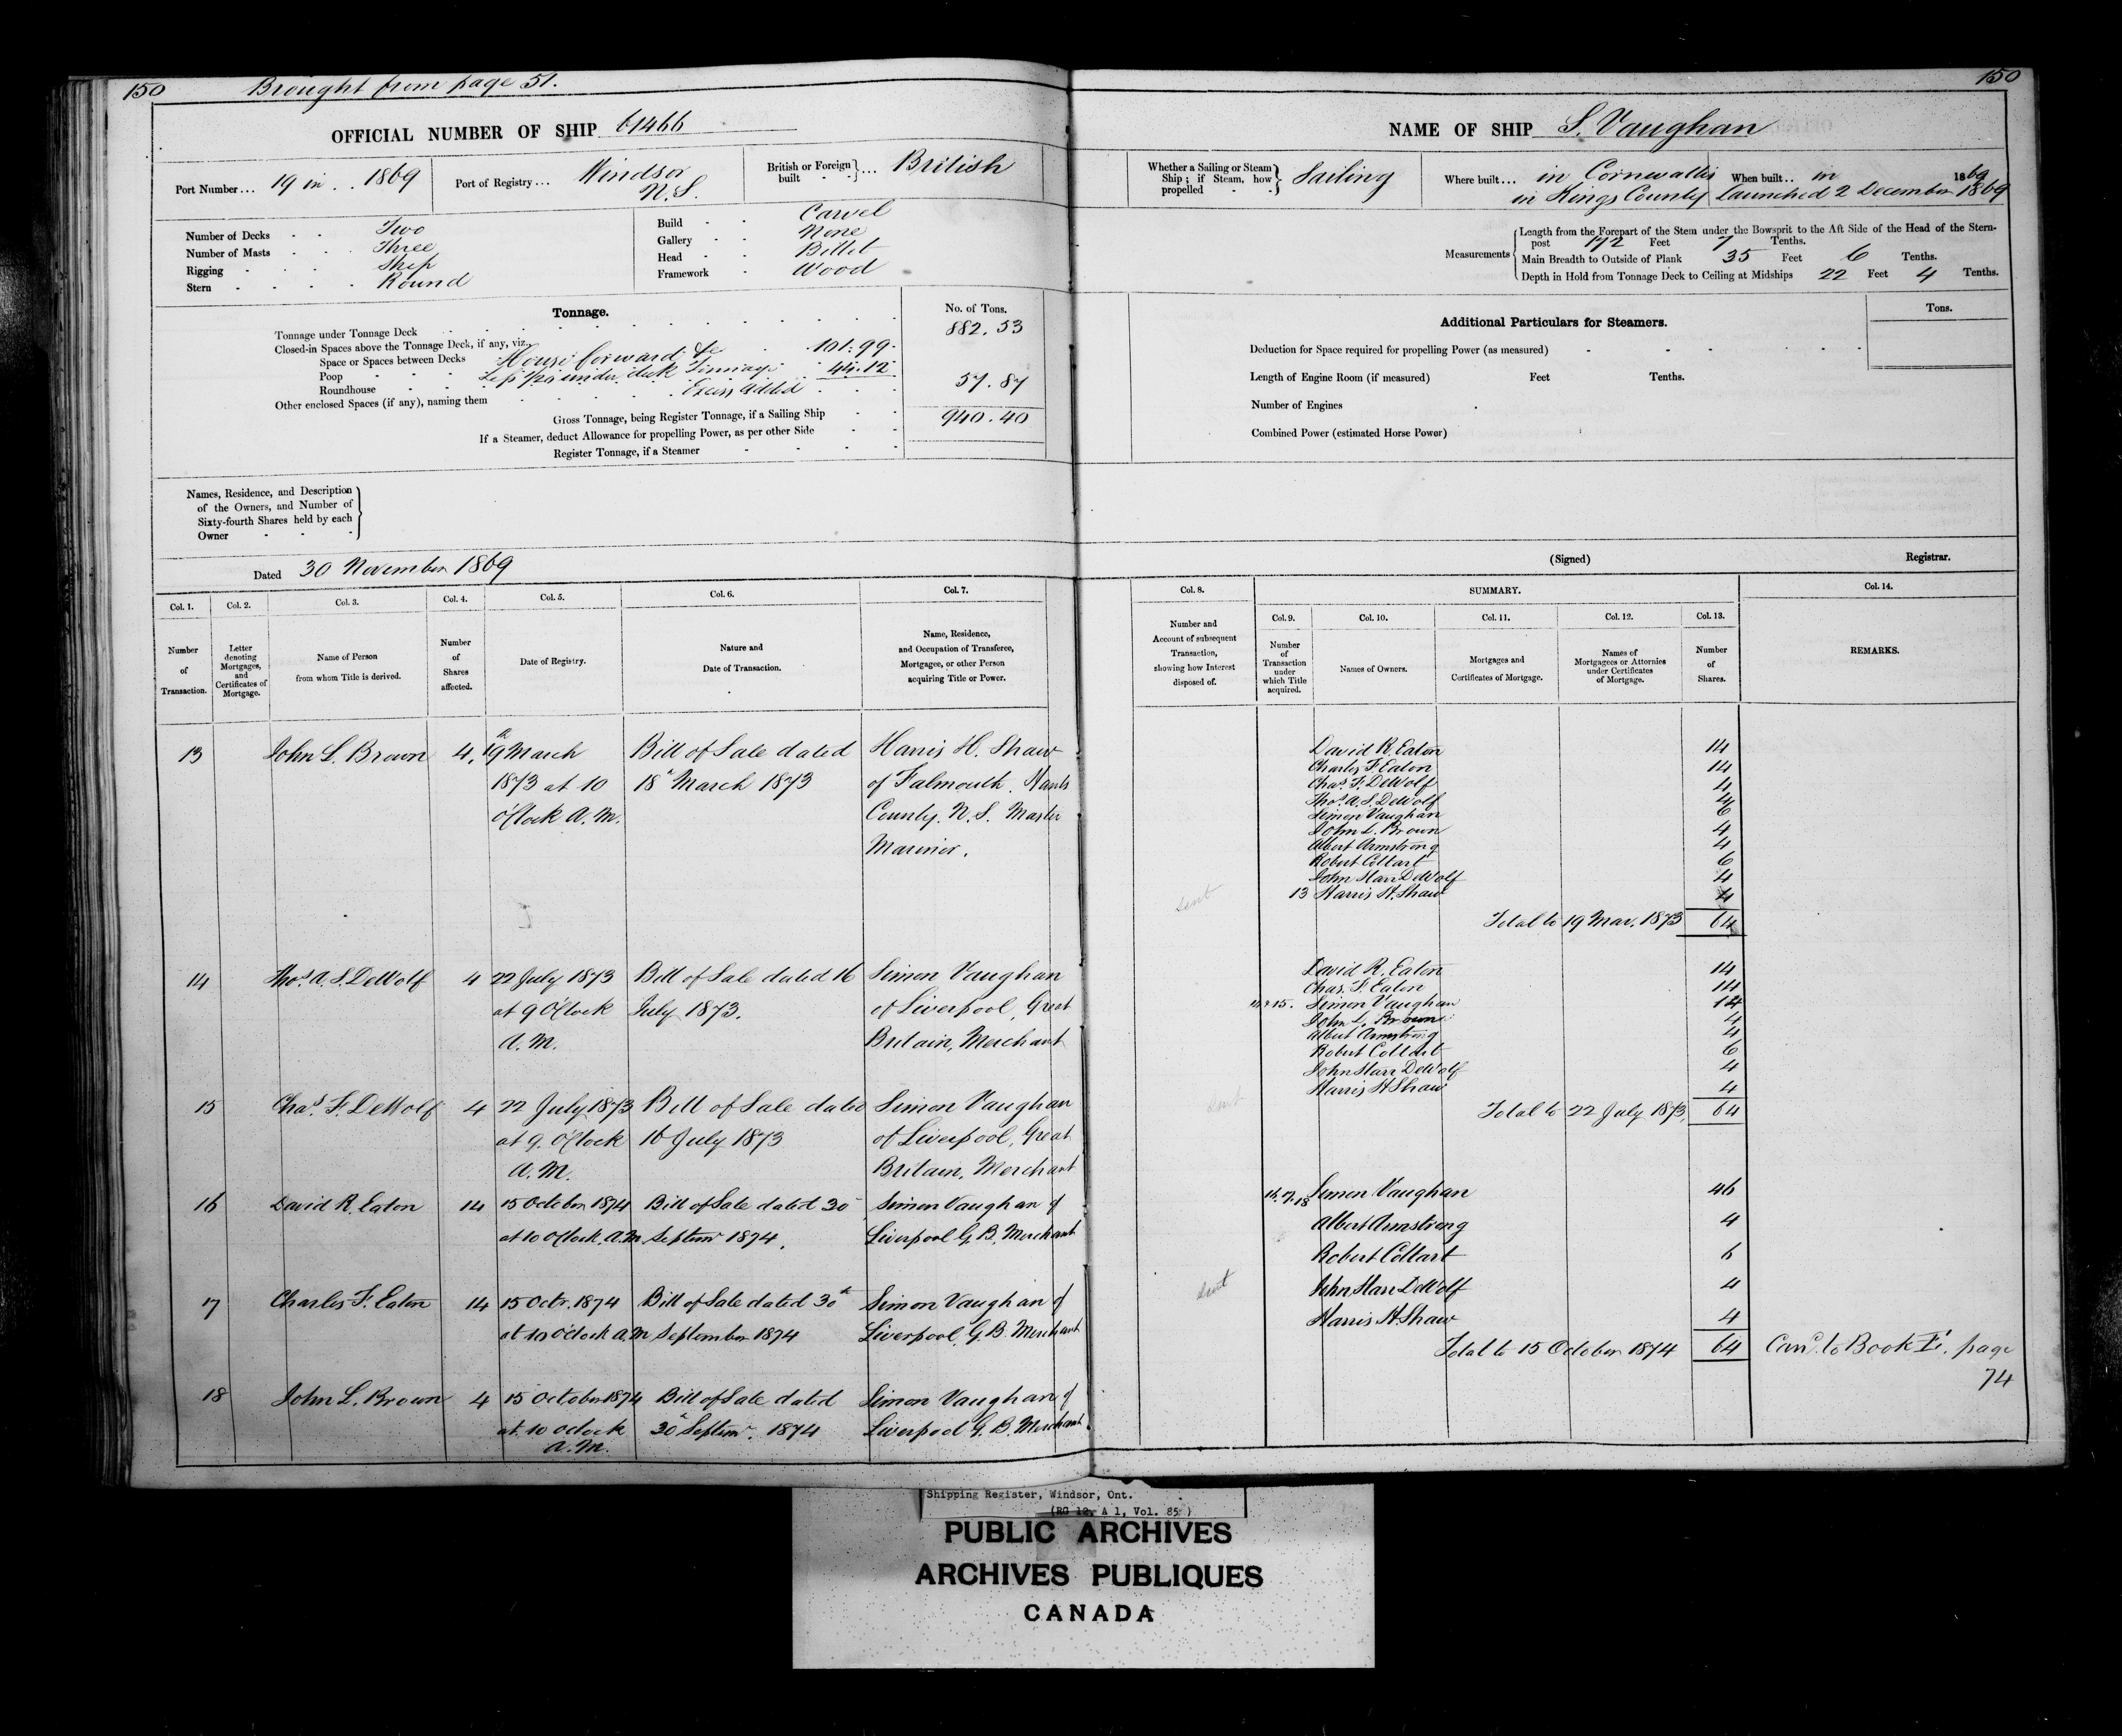 150 Brought from page 51.
OFFICIAL NUMBER OF SHIP 61466
Port Number... 19 in .. 1869
Port of Registry... Windsor N.S.
British or Foreign built ... British
Number of Decks Two
Number of Masts Three
Rigging Ship
Stern Round
Build Carvel
Gallery None
Head Billet
Framework Wood
Tonnage. No. of Tons.
Tonnage under Tonnage Deck 882.53
Closed-in Spaces above the Tonnage Deck, if any, viz.
Space or Spaces between Decks House forward &c 101.99
Poop Less under deck Tonnage 44.12
Roundhouse Excess added 57.87
Other enclosed Spaces (if any), naming them
Gross Tonnage, being Register Tonnage, if a Sailing Ship 940.40
If a Steamer, deduct Allowance for propelling Power, as per other Side
Register Tonnage, if a Steamer
Names, Residence, and Description
of the Owners, and Number of
Sixty-fourth Shares held by each
Owner
Dated 30 November 1869
Col. 1. Col. 2. Col. 3. Col. 4. Col. 5. Col. 6. Col. 7.
Number of Transaction.
Letter denoting Mortgages, and Certificates of Mortgage.
Name of Person from whom Title is derived.
Number of Shares affected.
Date of Registry.
Nature and Date of Transaction.
Name, Residence, and Occupation of Transferee, Mortgagee, or other Person acquiring Title or Power.
13 John L. Brown 4, 19th March Bill of Sale dated Harris H. Shaw
1873 at 10 18th March 1873 of Falmouth, Hants
O'Clock A.M. County, N.S. Master
Mariner.
14 Thos. A. S. DeWolf 4 22 July 1873 Bill of Sale dated 16 Simon Vaughan
at 9 O'Clock July 1873. of Liverpool, Great
A.M. Britain, Merchant
15 Chas. F. DeWolf 4 22 July 1873 Bill of Sale dated Simon Vaughan
at 9. O'Clock 16 July 1873 of Liverpool, Great
A.M. Britain, Merchant
16 David R. Eaton 14 15 October 1874 Bill of Sale dated 30 Simon Vaughan of
at 10 O'Clock A.M. Septemr 1874. Liverpool G.B. Merchant
17 Charles F. Eaton 14 15 Octr. 1874 Bill of Sale dated 30th Simon Vaughan of
at 10 O'Clock A.M September 1874 Liverpool, G.B. Merchant
18 John L. Brown 4 15 October 1874 Bill of Sale dated Simon Vaughan of
at 10 O'clock 30th Septemr. 1874 Liverpool G.B. Merchant
A.M.
150
NAME OF SHIP S. Vaughan
Whether a Sailing or Steam Ship; if Steam, how propelled Sailing
Where built... in Cornwallis
in Kings County
When built.. in 1869
Launched 2 December 1869
Measurements
Length from the Forepart of the Stem under the Bowsprit to the Aft Side of the Head of the Stern-
post 172 Feet 7 Tenths.
Main Breadth to Outside of Plank 35 Feet 6 Tenths.
Depth in Hold from Tonnage Deck to Ceiling at Midships 22 Feet 4 Tenths.
Additional Particulars for Steamers. Tons.
Deduction for Space required for propelling Power (as measured)
Length of Engine Room (if measured) Feet Tenths.
Number of Engines
Combined Power (estimated Horse Power)
(Signed) Registrar.
Col. 8. SUMMARY. Col. 14.
Col. 9. Col. 10. Col. 11. Col. 12. Col. 13.
Number and Account of subsequent Transaction, showing how Interest disposed of.
Number of Transaction under which Title acquired.
Names of Owners.
Mortgages and Certificates of Mortgage.
Names of Mortgagees or Attornies under Certificates of Mortgage.
Number of Shares.
REMARKS.
David R. Eaton 14
Charles F Eaton 14
Chas. F. DeWolf 4
Thos. A. S. DeWolf 4
Simon Vaughan 6
John L. Brown 4
Albert Armstrong 4
Robert Coltart 6
John Starr DeWolf 4
sent 13 Harris H. Shaw 4
Total to 19 Mar. 1873 64
David R. Eaton 14
Chas. F. Eaton 14
14 & 15. Simon Vaughan 14
John L. Brown 4
Albert Armstrong 4
Robert Coltart 6
John Starr DeWolf 4
sent Harris H Shaw 4
Total to 22 July 1873, 64
16.17.18 Simon Vaughan 46
Albert Armstrong 4
Robert Coltart 6
sent John Starr DeWolf 4
Harris H. Shaw 4
Total to 15 October 1874 64 Card. to Book E. page
74
Shipping Register, Windsor, Ont.
(RG 12, A 1, Vol. 85)
PUBLIC ARCHIVES
ARCHIVES PUBLIQUES
CANADA